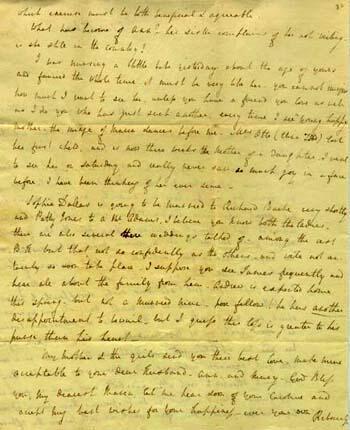 which exercise must be both beneficial & agreeable.
What has become of Ann - her sister complains of her not writing.
is she still in the country?
I was nursing a little babe yesterday about the age of yours
and fancied the whole time it must be very like her. you cannot imagine
how much I want to see her, unless you have a friend you love as well
as I do you who has just such another. every time I see young happy
mothers the image of Maria dances before me. Mrs Otto lost
her first child, and is now three weeks the mother of a daughter. I went
to see her on saturday and really never saw so much joy in a face
before. I have been thinking of her ever since.
Sophia Dallas is going to be married to Richard Bache very shortly
and Patty Jones to a Mr I believe you know both the ladies.
there are also several weddings talked of among the rest
but that not so confidently as the others, and will not
certainly so soon take place. I suppose you see James frequently and
hear all about the family from him. Andrew is expected home
this Spring, but not a married man. poor fellow! he has another
disappointment to but I guess this loss is greater to his
purse than his heart
My Mother & the girls send you their best love. make mine
acceptable to your dear Husband. Ann. and Mercy. God Bless
you, My dearest Maria, let me hear soon of your Caroline and
accept my best wishes for your happiness - ever your own Rebecca